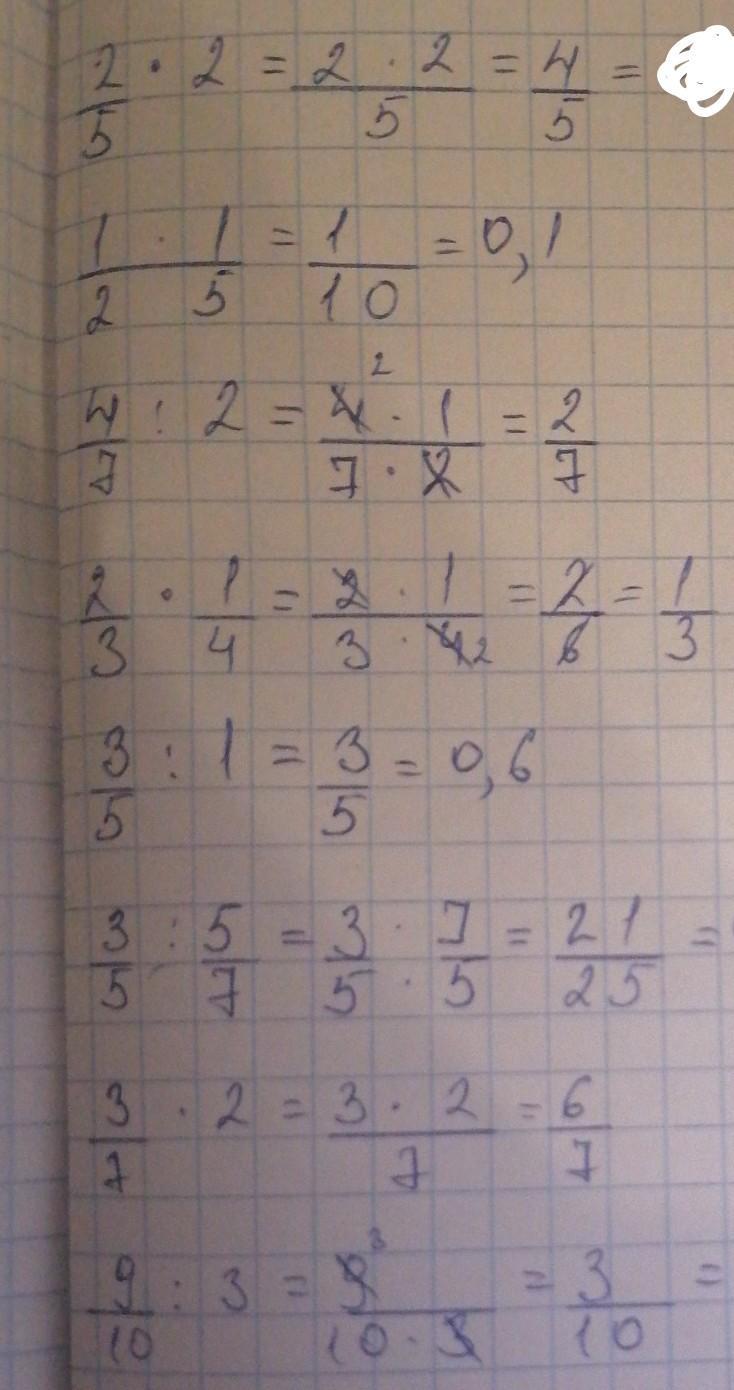 2/5 · 2 = (2 · 2)/5 = 4/5 =
1/2 · 1/5 = 1/10 = 0,1
4/7 : 2 = (4² · 1)/(7 · 2) = 2/7
2/3 · 1/4 = (2 · 1)/(3 · 4₂) = 2/6 = 1/3
3/5 : 1 = 3/5 = 0,6
3/5 : 5/7 = 3/5 · 7/5 = 21/25 =
3/7 · 2 = (3 · 2)/7 = 6/7
9/10 : 3 = 9³/(10 · 3) = 3/10 =